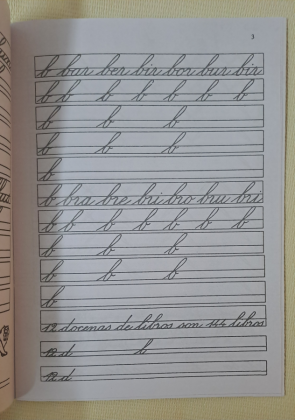 3
b bar ber bir bor bur bir
b b b b b b b
b b b
b b b
b
b bra bre bri bro bru bri
b b b b b b b
b b b
b b b
b
12 docenas de libros son 144 libros
12 d b
12 d